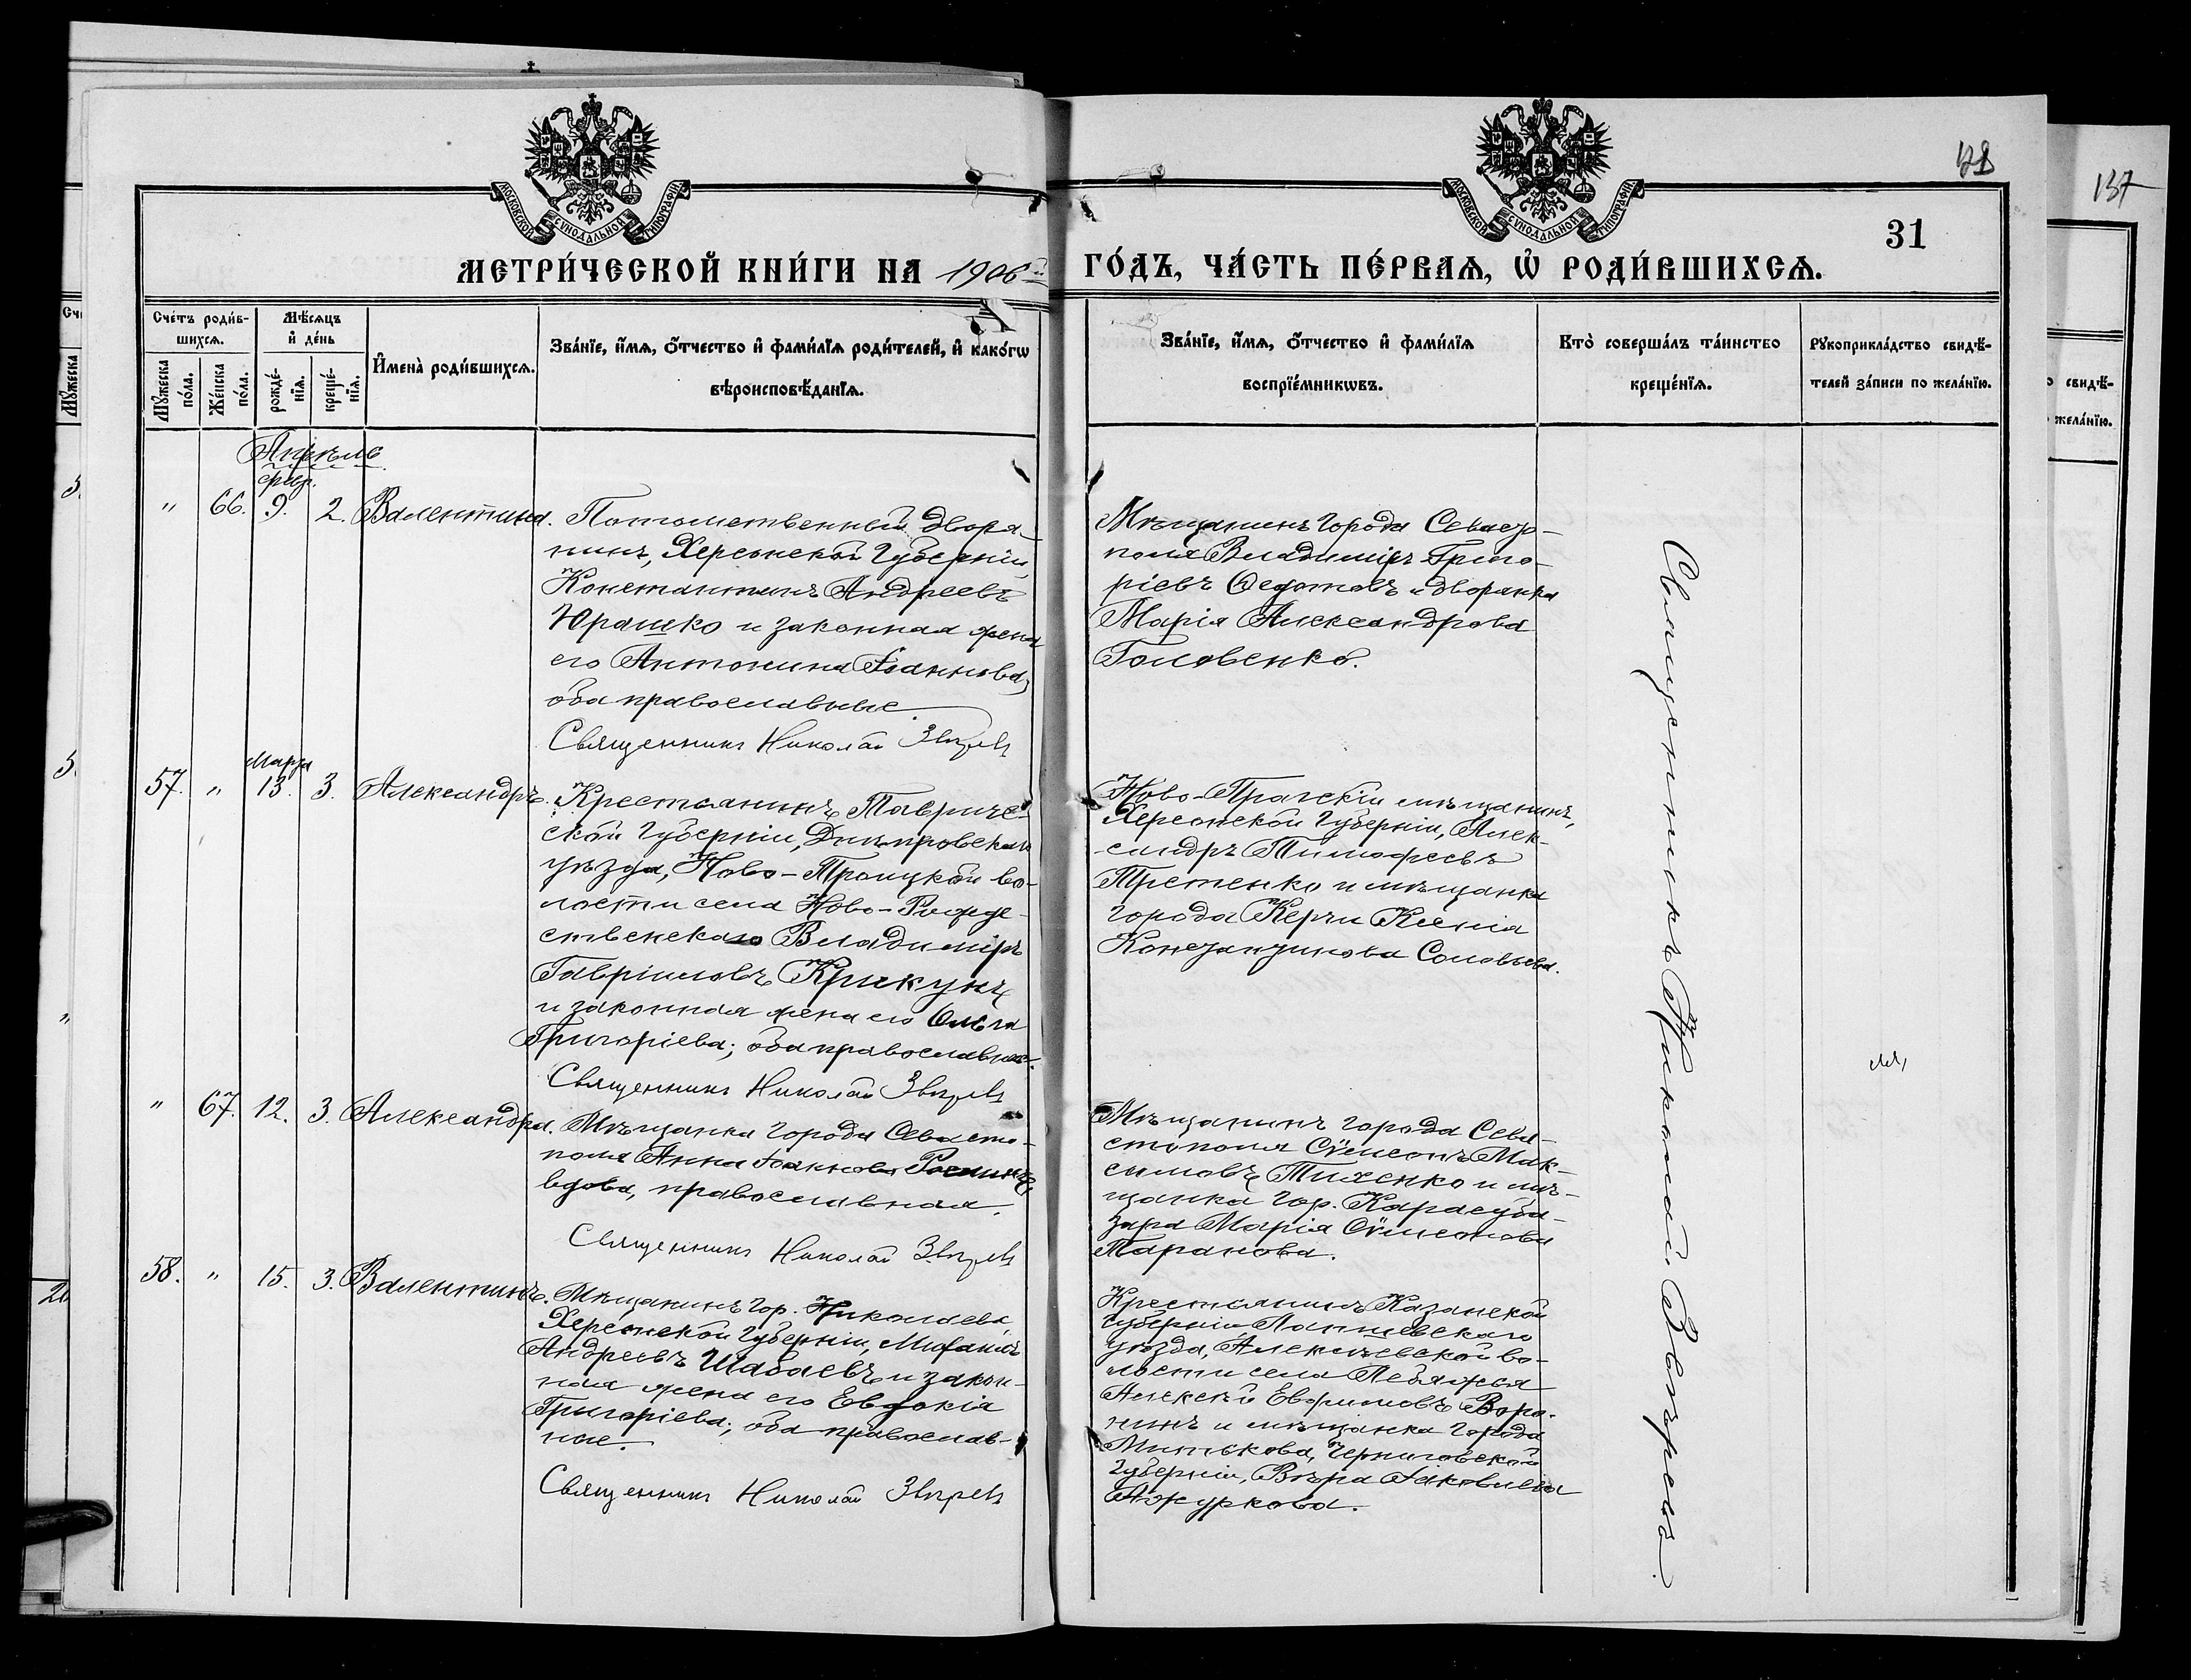 МОСКОВСКОЙ СѴНОДАЛЬНОЙ ТИПОГРАФІИ
МОСКОВСКОЙ СѴНОДАЛЬНОЙ ТИПОГРАФІИ
137
31
МЕТРИ́ЧЕСКОЙ КНИ́ГИ НА 1906й ГО́ДЪ, ЧА́СТЬ ПЕ́РВАѦ, Ѡ҆ РОДИ́ВШИХСѦ.
Сче́тъ роди́в-
шихсѧ.
Мꙋ́жеска по́ла.
Же́нска по́ла.
Мѣ́сѧцъ
и҆ де́нь
рожде́-
нїѧ.
креще́-
нїѧ.
И҆мена̀ роди́вшихсѧ.
Зва́нїе, и҆́мѧ, ѻ҆́тчество и҆ фамилїѧ роди́телей, и҆ како́гѡ
вѣроисповѣ́данїѧ.
Зва́нїе, и҆́мѧ, ѻ҆́тчество и҆ фами́лїѧ
воспрїе́мникѡвъ.
Кто̀ соверша́лъ та́инство
креще́нїѧ.
Рꙋкоприкла́дство свидѣ́-
телей за́писи по жела́нїю.
Апрѣль
февр.
" 66. 9. 2. Валентина.
Потомственный дворя-
нинъ, Херсонской Губерніи
Константинъ Андреевъ
Юрашко и законная жена
его Антонина Іоаннова,
оба православные.
Священникъ Николай Звѣревъ
Мѣщанинъ города Севасто-
поля Владиміръ Григо-
ріевъ Ѳедотовъ и дворянка
Марія Александрова
Головенко.
Марта
57. " 13. 3. Александръ.
Крестьянинъ Тавриче-
ской Губерніи, Днѣпровскаго
уѣзда, Ново-Троицкой во-
лости села Ново-Рожде-
ственскаго Владиміръ
Гавріиловъ Крикунъ
и законная жена его Ольга
Григоріева; оба православные.
Священникъ Николай Звѣревъ
Ново-Пражскій мѣщанинъ,
Херсонской Губерніи, Алек-
сандръ Тимофеевъ
Третенко и мѣщанка
города Керчи Ксенія
Константинова Соловьева.
" 67. 12. 3. Александра.
Мѣщанка города Севасто-
поля Анна Іоаннова
вдова, православная.
Священникъ Николай Звѣревъ
Мѣщанинъ города Сева-
стополя Сѵмеонъ Мак-
симовъ Тихенко и мѣ-
щанка гор. Карасуба-
зара Марія Сѵмеонова
Таранова.
58. " 15. 3. Валентинъ.
Мѣщанинъ гор. Николаева
Херсонской Губерніи, Михаилъ
Андреевъ Шабаевъ и закон-
ная жена его Евдокія
Григоріева; оба православ-
ные.
Священникъ Николай Звѣревъ
Крестьянинъ Казанской
Губерніи Лаишевскаго
уѣзда, Алексѣевской во-
лости села Лебяжья
Алексѣй Евфимовъ Воро-
нинъ и мѣщанка города
Черниговской
Губерніи, Вѣра Іаковлева
Ажуркова.
Священникъ Николай Звѣревъ.